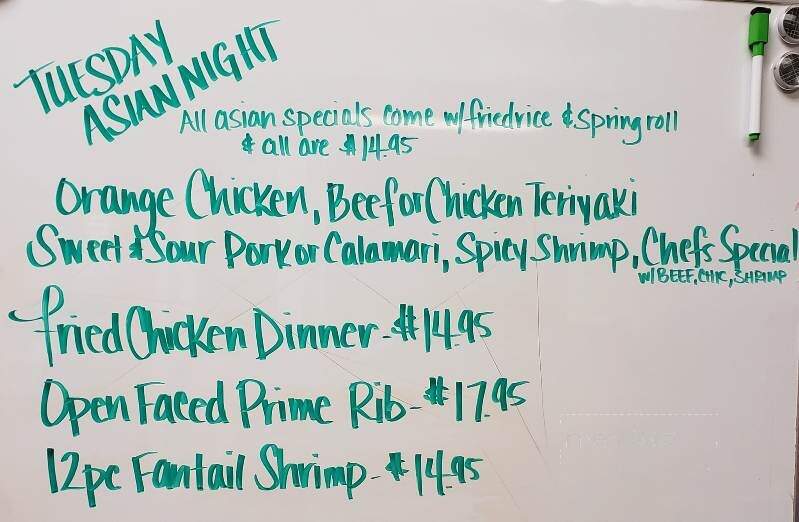 TUESDAY
ASIAN NIGHT
All asian specials come w/friedrice & Spring roll
& all are $14.95
Orange Chicken, Beef or Chicken Teriyaki
Sweet & Sour Pork or Calamari, Spicy Shrimp, Chefs Special
w/ BEEF, CHIC, SHRIMP
Fried Chicken Dinner - $14.95
Open Faced Prime Rib - $17.95
12pc Fantail Shrimp - $14.95